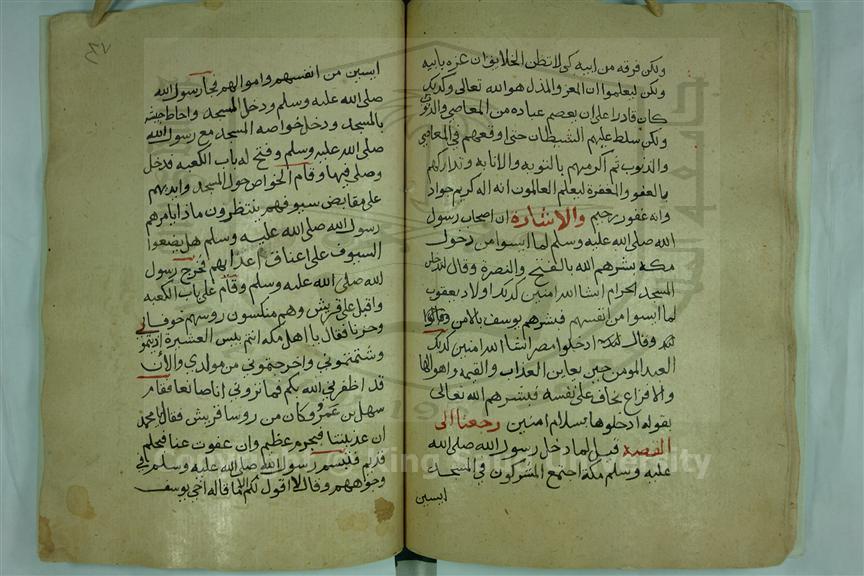 ولكن فرقه من ابيه كى لا تظن الخلايق ان عزه بابيه
ولكن ليعلموا ان المعز والمذل هو الله تعالى وكذلك
كان قادرا على ان يعصم عباده من المعاصى والذنوب
ولكن سلط عليهم الشيطان حتى اوقعهم فى المعاصى
والذنوب ثم اكرمهم بالتوبه والانابه وتداركهم
بالعفو والمغفرة ليعلم العالمون انه اله كريم جواد
وانه غفور رحيم والاشارة ان اصحاب رسول
الله صلى الله عليه وسلم لما ايسوا من دخول
مكه بشرهم الله بالفتح والنصرة وقال لتدخلن
المسجد الحرام انشا الله امنين كذلك اولاد يعقوب
لما ايسوا من انفسهم فبشرهم يوسف بالامن وقالوا
وقال ادخلوا مصر انشا الله امنين كذلك
العبد المومن حين يعاين العذاب والقيمه واهوالها
والافزاع يخاف على نفسه فيبشرهم الله تعالى
بقوله ادخلوها بسلام امنين رجعنا الى
القصة قيل لما دخل رسول الله صلى الله
عليه وسلم مكة اجتمع المشركون فى المسجد
ايسين
ايسين من انفسهم واموالهم فجا رسول الله
صلى الله عليه وسلم ودخل المسجد واحاط جيشه
بالمسجد ودخل خواصه المسجد مع رسول الله
صلى الله عليه وسلم وفتح له باب الكعبه فدخل
وصلى فيها وقام الخواص حول المسجد وايديهم
على مقابض سيوفهم ينتظرون ماذا يامرهم
رسول الله صلى الله عليه وسلم هل يضعوا
السيوف على اعناق اعدايهم فخرج رسول
لله صلى الله عليه وسلم وقام على باب الكعبه
واقبل على قريش وهم منكسون روسهم خوفا
وحزنا فقال يا اهل مكة انتم بيس العشيرة اذيتمونى
وشتمتمونى واخرجتمونى من مولدى والآن
قد اظفرنى الله بكم فما ترونى انا صانعا فقام
سهل بن عمرو وكان من روسا قريش فقال يا محمد
ان عذبتنا فبجرم عظيم وان عفوت عنا فبحلم
قديم فتبسم رسول الله صلى الله عليه وسلم فى
وجوههم وقال لا اقول لكم الا ما قاله اخى يوسف